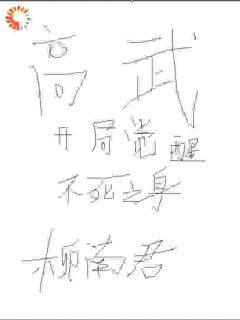 高武
开局觉醒
不死之身
柳南君